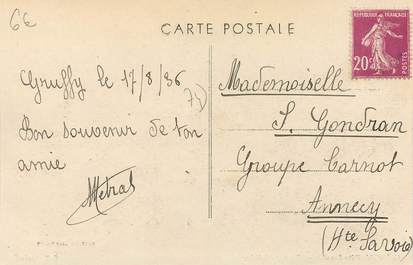 6€
CARTE POSTALE
REPUBLIQUE FRANÇAISE
20c
POSTES
Gruffy le 17/8/36
Bon souvenir de ton
amie
Metral
Mademoiselle
S. Gondran
Groupe Carnot
Annecy
(Hte Savoie)